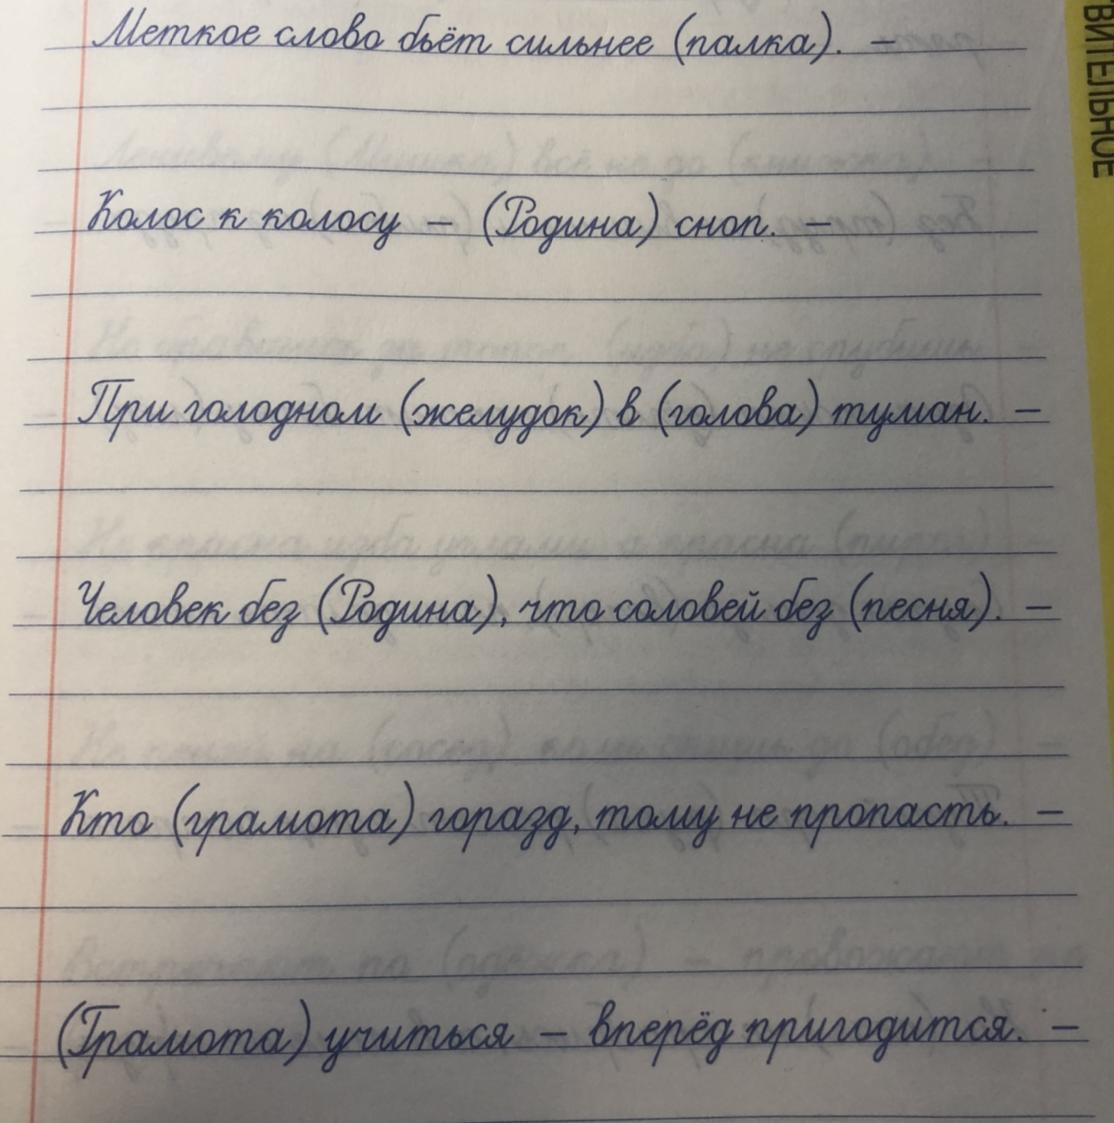 Меткое слово бьёт сильнее (палка). –
Колос к колосу – (Родина) сноп. –
При голодном (желудок) в (голова) туман. –
Человек без (Родина), что соловей без (песня). –
Кто (грамота) горазд, тому не пропасть. –
(Грамота) учиться – вперёд пригодится. –
ВИТЕЛЬНОЕ